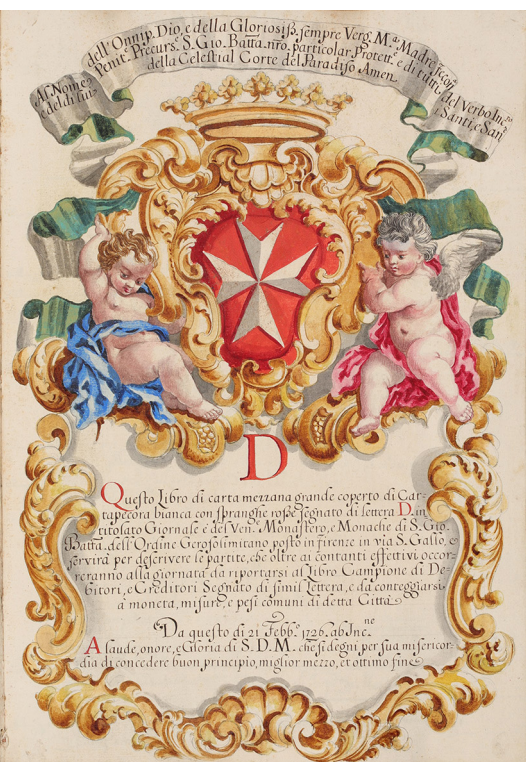 Al Nome dell'Onnip. Dio, e della Gloriosiss. sempre Verg. M.ª Madre
e del di lui Penit. Precurs. S. Gio. Batta. nrō. particolar. Protett. e di tutti
del Verbo Inc.
i Santi, e San.
della Celestial Corte del Paradiso Amen.
D
Questo Libro di carta mezzana grande coperto di Car-
tapecora bianca con spranghe rosse segnato di lettera D. in
titolato Giornale è del Ven. Monastero, e Monache di S. Gio.
Batta. dell'Ordine Gerosolimitano posto in firenze in via S. Gallo, e
servirà per descrivere le partite, che oltre ai contanti effettivi occor-
reranno alla giornata da riportarsi al Libro Campione di De-
bitori, e Creditori Segnato di simil lettera, e da conteggiarsi
a moneta, misure, e pesi comuni di detta Città
Da questo di 21 Febb.º 1726. ab Inc.ne
A laude, onore, e Gloria di S. D. M. che si degni per sua misericor-
dia di concedere buon, principio, miglior mezzo, et ottimo fine